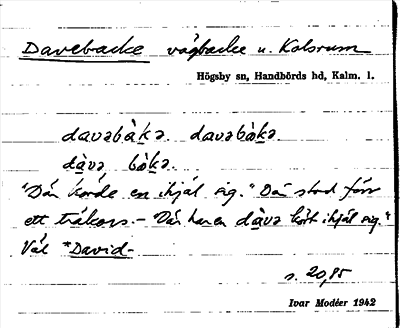 Davebacke vägbacke n. Kolsrum
Högsby sn, Handbörds hd, Kalm. l.
davəbàkə. davəbòkə.
dàvə bòkə.
"Där körde en ihjäl sig." Där stod förr
ett träkors. – "Där har en dàvə kört ihjäl sig."
Väl *David-
s. 20, 85
Ivar Modéer 1942